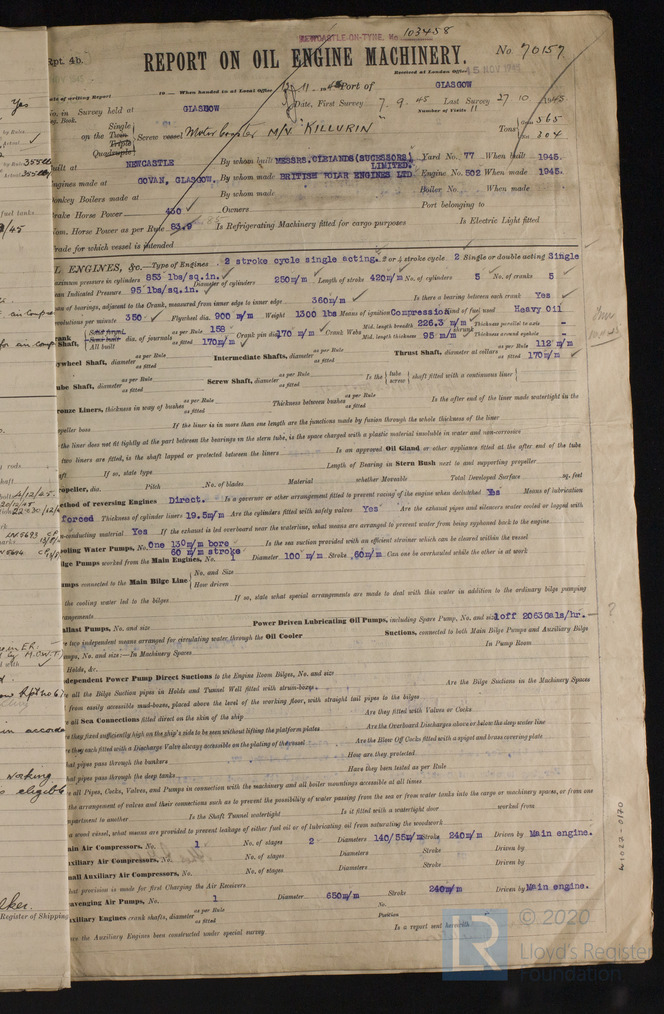 NEWCASTLE-ON-TYNE. No. 103458
Rpt. 4b.
REPORT ON OIL ENGINE MACHINERY.
No. 70157
Received at London Office 15 NOV 1945
Date of writing Report 19 When handed in at Local Office 19 45 Port of GLASGOW
No. in Survey held at GLASGOW Date, First Survey 7. 9. 45 Last Survey 27 10 1945
Reg. Book. Number of Visits 11
on the Single Twin Triple Quadruple Screw vessel Motor Coaster M/V "KILLURIN" Tons Gross 565 Net 204
Built at NEWCASTLE By whom built MESSRS. CLELANDS (SUCESSORS) LIMITED. Yard No. 77 When built 1945.
Engines made at GOVAN, GLASGOW. By whom made BRITISH POLAR ENGINES LTD. Engine No. 502 When made 1945.
Donkey Boilers made at By whom made Boiler No. When made
Brake Horse Power 430 Owners Port belonging to
Nom. Horse Power as per Rule 83.9 Is Refrigerating Machinery fitted for cargo purposes Is Electric Light fitted
Trade for which vessel is intended
OIL ENGINES, &c.—Type of Engines 2 stroke cycle single acting. 2 or 4 stroke cycle 2 Single or double acting Single
Maximum pressure in cylinders 853 lbs/sq.in. Diameter of cylinders 250m/m Length of stroke 420m/m No. of cylinders 5 No. of cranks 5
Mean Indicated Pressure 95 lbs/sq.in.
Span of bearings, adjacent to the Crank, measured from inner edge to inner edge 360m/m Is there a bearing between each crank Yes
Revolutions per minute 350 Flywheel dia. 900 m/m Weight 1300 lbs Means of ignition Compression Kind of fuel used Heavy Oil
Crank Shaft, Solid forged Semi built All built dia. of journals as per Rule 158 as fitted 170m/m Crank pin dia. 170 m/m Crank Webs Mid. length breadth 226.3 m/m Mid. length thickness 95 m/m shrunk Thickness parallel to axis - Thickness around eyehole -
Flywheel Shaft, diameter as per Rule as fitted Intermediate Shafts, diameter as per Rule as fitted Thrust Shaft, diameter at collars as per Rule 112 m/m as fitted 170m/m
Tube Shaft, diameter as per Rule as fitted Screw Shaft, diameter as per Rule as fitted Is the tube screw shaft fitted with a continuous liner
Bronze Liners, thickness in way of bushes as per Rule as fitted Thickness between bushes as per Rule as fitted Is the after end of the liner made watertight in the
propeller boss If the liner is in more than one length are the junctions made by fusion through the whole thickness of the liner
If the liner does not fit tightly at the part between the bearings in the stern tube, is the space charged with a plastic material insoluble in water and non-corrosive
If two liners are fitted, is the shaft lapped or protected between the liners Is an approved Oil Gland or other appliance fitted at the after end of the tube
shaft If so, state type Length of Bearing in Stern Bush next to and supporting propeller
Propeller, dia. Pitch No. of blades Material whether Moveable Total Developed Surface sq. feet
Method of reversing Engines Direct. Is a governor or other arrangement fitted to prevent racing of the engine when declutched Yes Means of lubrication
forced Thickness of cylinder liners 19.5m/m Are the cylinders fitted with safety valves Yes Are the exhaust pipes and silencers water cooled or lagged with
non-conducting material Yes If the exhaust is led overboard near the waterline, what means are arranged to prevent water from being syphoned back to the engine
Cooling Water Pumps, No. One 130m/m bore 60 m/m stroke Is the sea suction provided with an efficient strainer which can be cleared within the vessel
Bilge Pumps worked from the Main Engines, No. 1 Diameter 100 m/m Stroke 60m/m Can one be overhauled while the other is at work
Pumps connected to the Main Bilge Line No. and Size How driven
Is the cooling water led to the bilges If so, state what special arrangements are made to deal with this water in addition to the ordinary bilge pumping
arrangements
Ballast Pumps, No. and size Power Driven Lubricating Oil Pumps, including Spare Pump, No. and size 1off 2063Gals/hr. ?
Are two independent means arranged for circulating water through the Oil Cooler Suctions, connected to both Main Bilge Pumps and Auxiliary Bilge
Pumps, No. and size:—In Machinery Spaces In Pump Room
In Holds, &c.
Independent Power Pump Direct Suctions to the Engine Room Bilges, No. and size
Are all the Bilge Suction pipes in Holds and Tunnel Well fitted with strum-boxes Are the Bilge Suctions in the Machinery Spaces
led from easily accessible mud-boxes, placed above the level of the working floor, with straight tail pipes to the bilges
Are all Sea Connections fitted direct on the skin of the ship Are they fitted with Valves or Cocks
Are they fixed sufficiently high on the ship's side to be seen without lifting the platform plates Are the Overboard Discharges above or below the deep water line
Are they each fitted with a Discharge Valve always accessible on the plating of the vessel Are the Blow Off Cocks fitted with a spigot and brass covering plate
What pipes pass through the bunkers How are they protected
What pipes pass through the deep tanks Have they been tested as per Rule
Are all Pipes, Cocks, Valves, and Pumps in connection with the machinery and all boiler mountings accessible at all times
Is the arrangement of valves and their connections such as to prevent the possibility of water passing from the sea or from water tanks into the cargo or machinery spaces, or from one
compartment to another Is the Shaft Tunnel watertight Is it fitted with a watertight door worked from
If a wood vessel, what means are provided to prevent leakage of either fuel oil or of lubricating oil from saturating the woodwork
Main Air Compressors, No. 1 No. of stages 2 Diameters 140/55m/m Stroke 240m/m Driven by Main engine.
Auxiliary Air Compressors, No. No. of stages Diameters Stroke Driven by
Small Auxiliary Air Compressors, No. No. of stages Diameters Stroke Driven by
What provision is made for first Charging the Air Receivers
Scavenging Air Pumps, No. 1 Diameter 650m/m Stroke 240m/m Driven by Main engine.
Auxiliary Engines crank shafts, diameter as per Rule as fitted No. Position
Have the Auxiliary Engines been constructed under special survey Is a report sent herewith
W1022-0170
LR © 2020
Lloyd's Register
Foundation